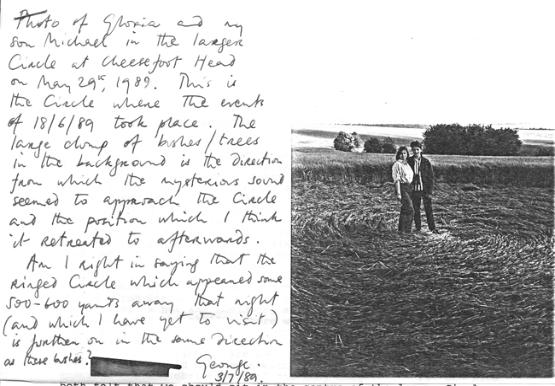 Photo of Gloria and my
son Michael in the larger
Circle at Cheesefoot Head
on May 29th, 1989. This is
the Circle where the events
of 18/6/89 took place. The
large clump of bushes/trees
in the background is the direction
from which the mysterious sound
seemed to approach the Circle
and the position which I think
it retreated to afterwards.
Am I right in saying that the
ringed Circle which appeared some
500-600 yards away that night
(and which I have yet to visit)
is further on in the same direction
as these bushes?
George.
3/7/89.
both felt that we should sit in the centre of the